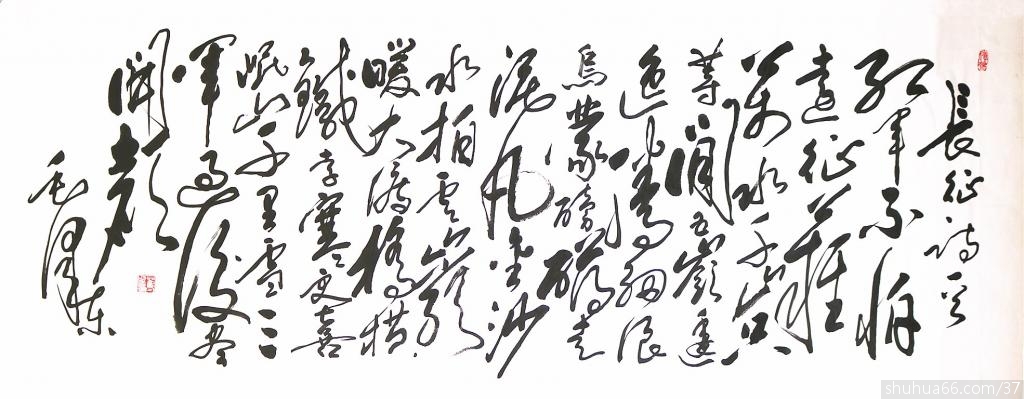 長征詩
紅軍不怕
遠征難
萬水千山只
等閒五嶺逶
迤騰細浪
烏蒙磅礴走
泥丸金沙
水拍雲崖
暖大渡橋橫
鐵索寒更喜
岷山千里雪三
軍過後盡
開顏
毛澤東
shuhua66.com/37